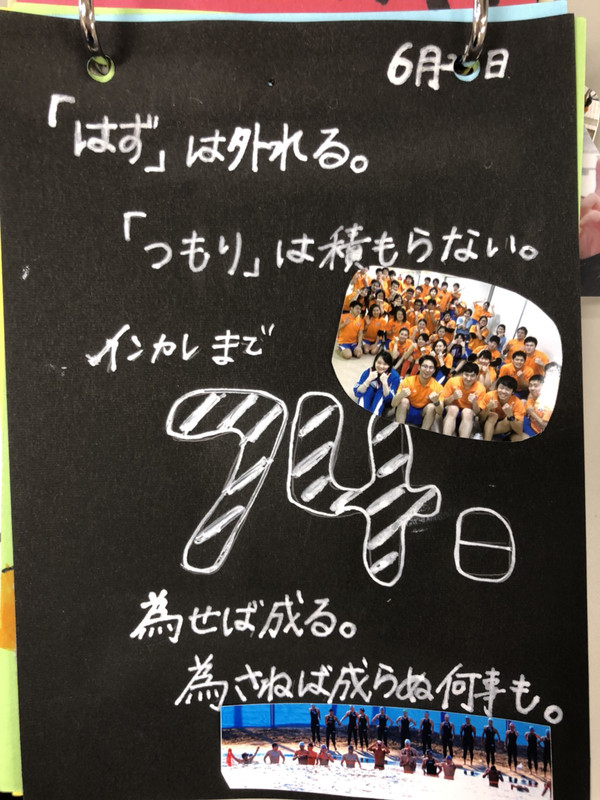 6月 日
「はず」は外れる。
「つもり」は積もらない。
インカレまで
74日
為せば成る。
為さねば成らぬ何事も。